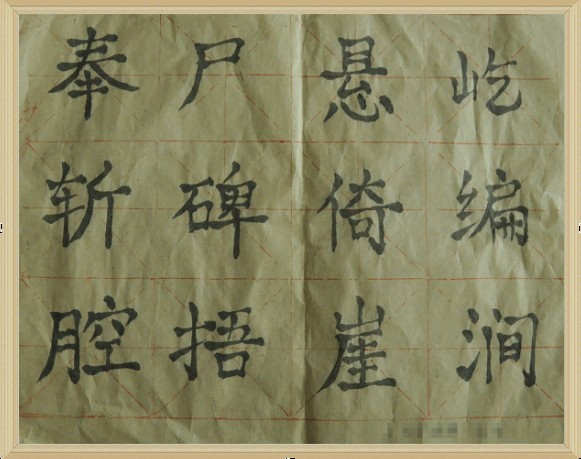 屹编涧
悬倚崖
尸碑捂
奉斩腔